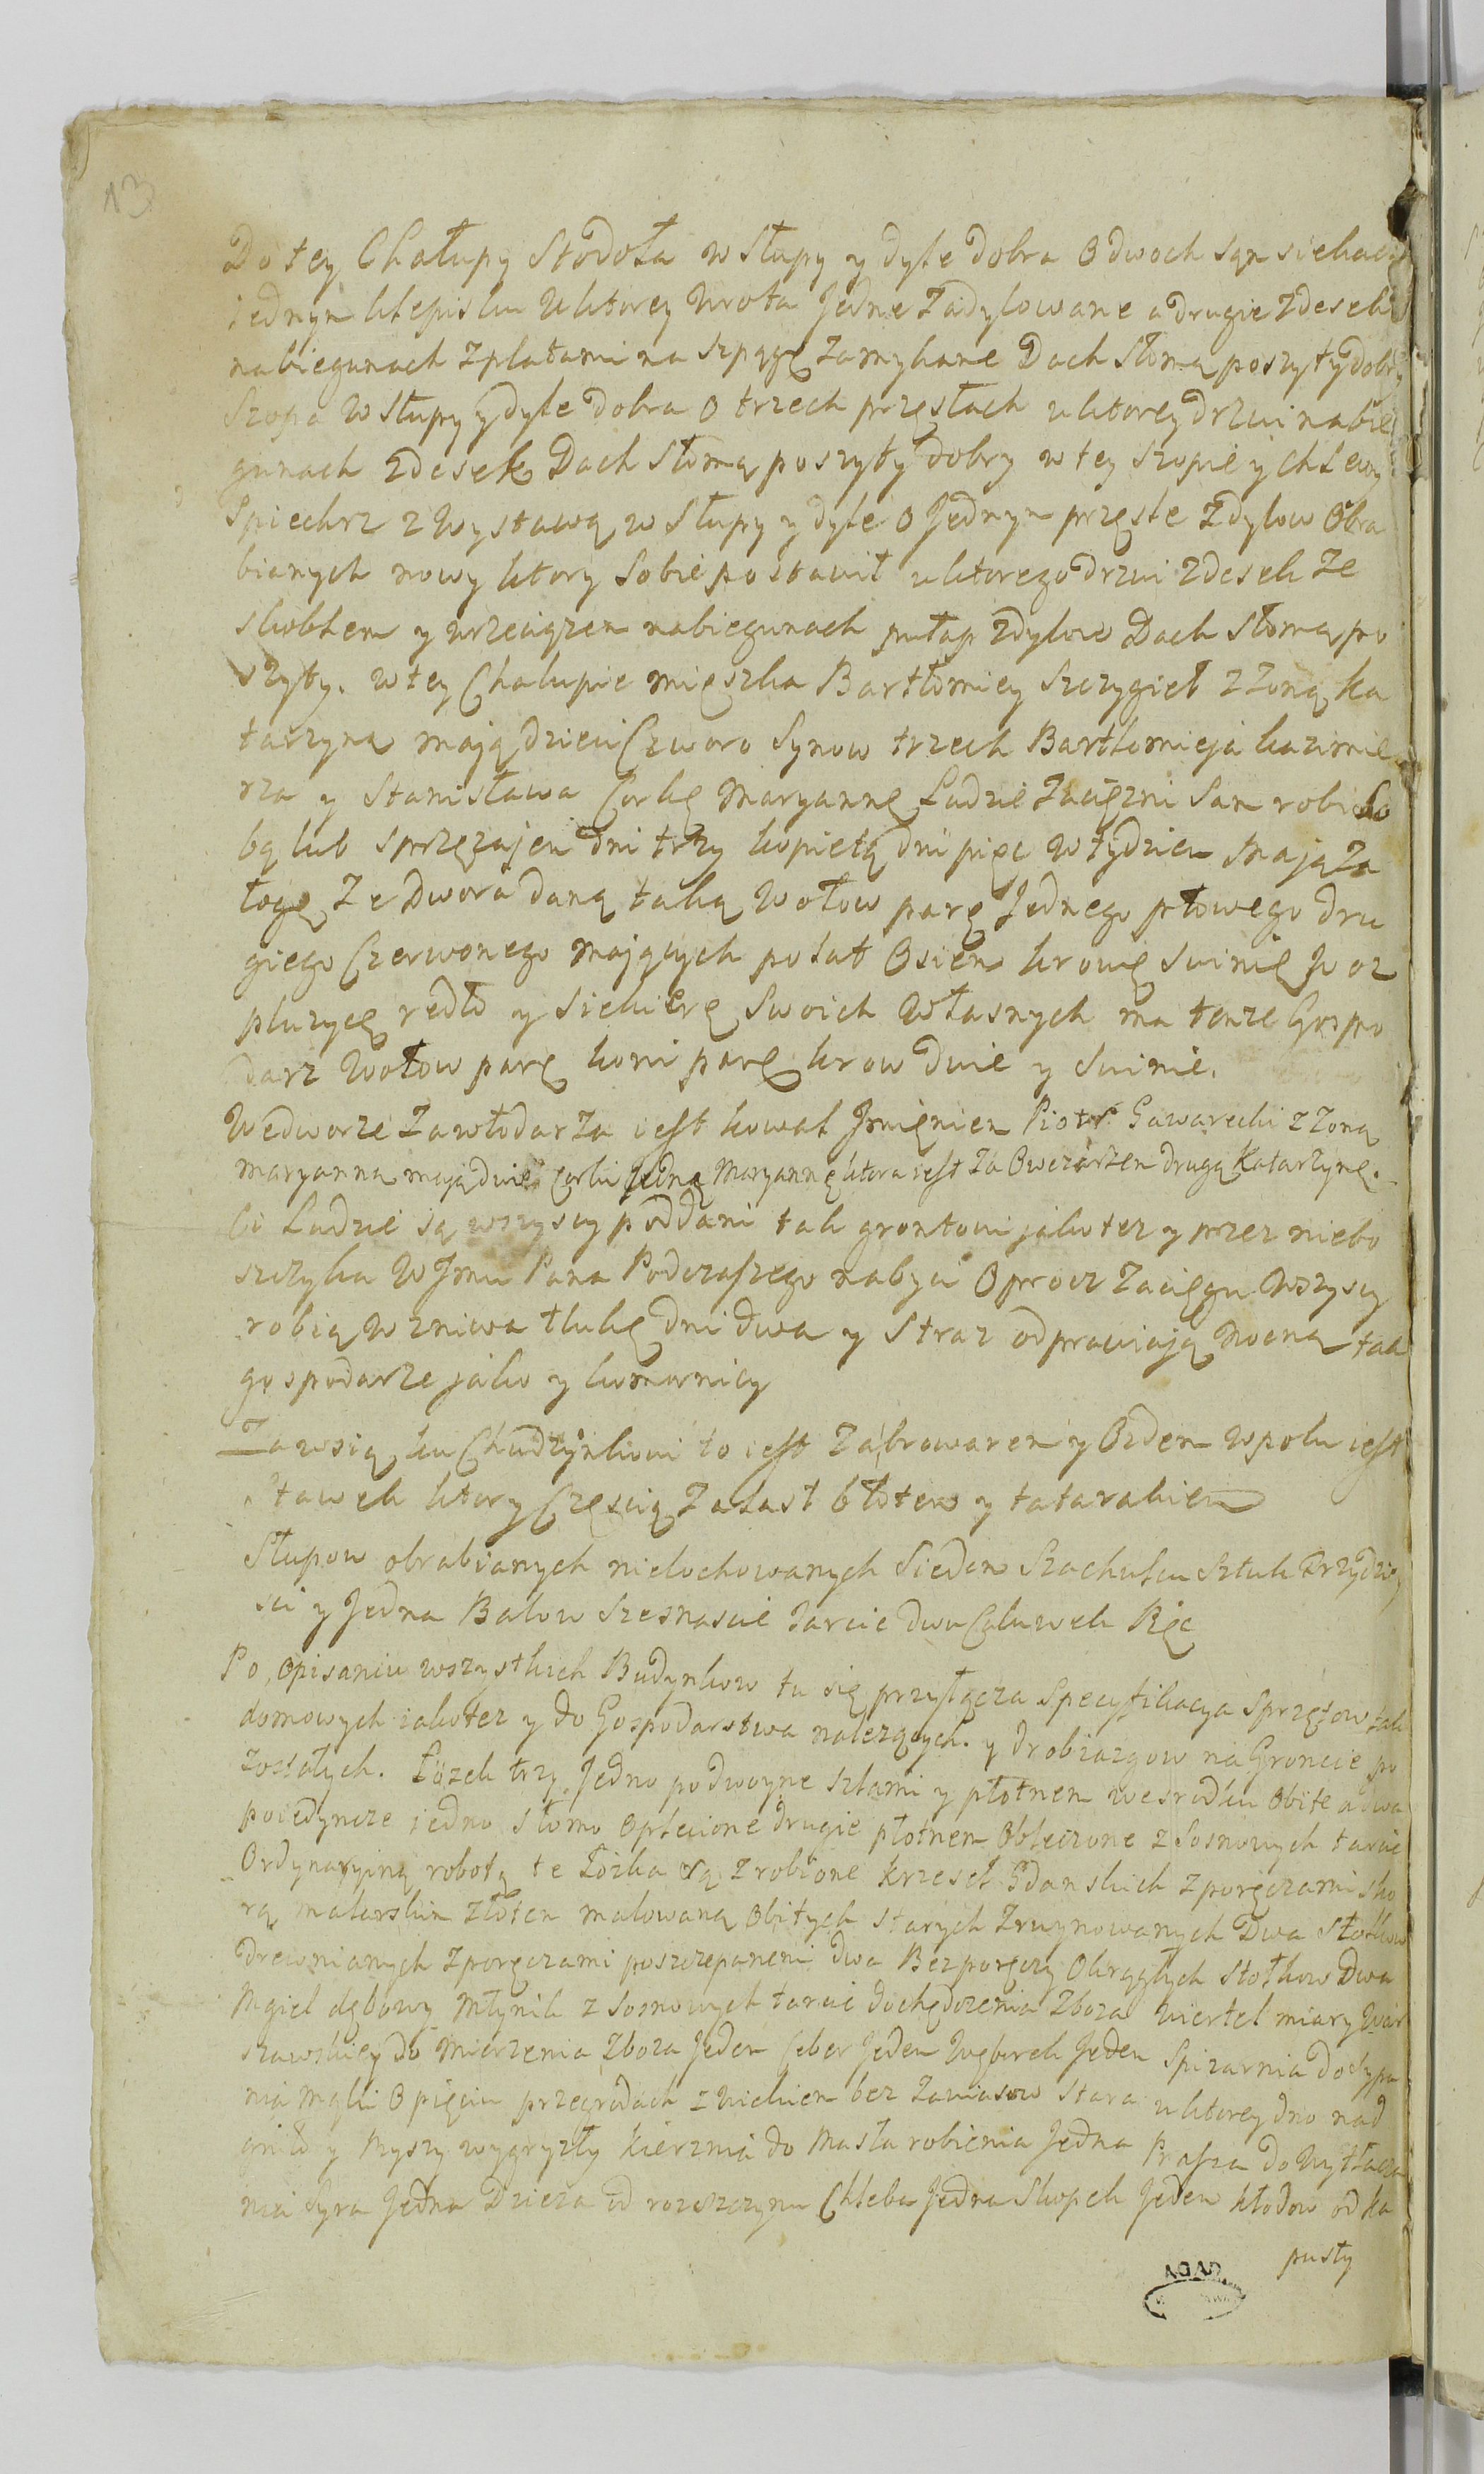 13
Do tey Chałupy Stodoła w Słupy y dyle dobra O dwoch sąsiekach
iednym klepisku u ktorey wrota Jedne zadylowane a drugie z desek
na biegunach z płatami na szpągę zamykane Dach Słomą poszyty dobry
Szopa w Słupy y dyle dobra O trzech przęsłach u ktorey drzwi na bie
gunach z desek Dach Słomą poszyty dobry w tey Szopie y chlewy
Spichrz z wystawą w Słupy y dyle O Jednym przęśle z dylow Obra
bianych nowy ktory Sobie postawił u ktorego drzwi z desek ze
skoblem y wrzeciązem na biegunach pułap z dylow Dach Słomą po
szyty. w tey Chałupie mięszka Bartłomiey Szczygieł z Zoną Ka
tarzyną mają dzieci Czworo Synow trzech Bartłomieja kazimie
rza y Stanisława Corkę Maryannę Ludzie zaciężni Sam robi So
bą lub sprzężajem dni trzy kopietą dni pięć w tydzien maja za
łogę Ze Dwora daną taką Wołow parę Jednego płowego dru
giego Czerwonego mających po lat Osiem krowę Swinię Woz
płużycę redło y Siekierę Swoich Własnych ma tenze Gospo
darz Wołow parę koni parę krow dwie y Swinie.
We dworze Za włodarza iest kowal Jmięniem Piotr Gawarecki z Zoną
Maryanną mają dwie Corki Jedną Maryannę ktora iest za Owczarzem drugą Katarzynę.
Ci Ludzie są wszyscy poddani tak grontowi jako tez y przez niebo
szczyka W Jmci Pana Podczaszego nabyci Oprocz Zaciągu wszyscy
robią w zniwa tłukę dni dwa y Straz odprawiają nocną tak
gospodarze jako y komornicy
Za wsią ku Chudzynkowi to iest Za browarem y Ozdem wpolu iest
Stawek ktory Częscią Zalasł błotem y tatarakiem
Słupow obrabianych nielochowanych Siedem Szachulcu Sztuk Trzydzie
sci y Jedna Balow Szesnascie tarcic dwu Calowek Pięć
Po opisaniu wszystkich Budynkow tu się przyłącza Specyfikacya Sprzętow tak
domowych iako tez y do Gospodarstwa nalezących. y drobiazgow na Groncie po
zostałych. Łozek trzy Jedno podwoyne sztami y płotnem we srodku Obite a dwa
poiedyncze iedno słomo Oplecione drugie płotnem Obleczone z sosnowych tarcic
Ordynaryiną robotą te Łózka są zrobione krzeseł Gdanskich z poręczami sko
rą malarskim złotem malowaną Obitych starych Zruynowanych Dwa Stołkow
drewnianych z poręczami poszczepanemi dwa Bez poręczy Okrągłych stołkow Dwa
Mgiel dębowy Młynik z sosnowych tarcic do chędozenia Zboza wiertel miary War
szawskiey do mierzenia Zboza Jeden Ceber Jeden Węborek Jeden Spizarnia do sypa
nia mąki O pięciu przegrodach z wiekiem bez zawiasow stara u ktorey dno nad
gniło y Myszy wygryzły Kierznia do masła robienia Jedna Prassa do wytłacza
nia Syra Jedna Dzieza od rozczynu Chleba Jedna Skopek Jeden kłodow od ka
pusty
AGAD